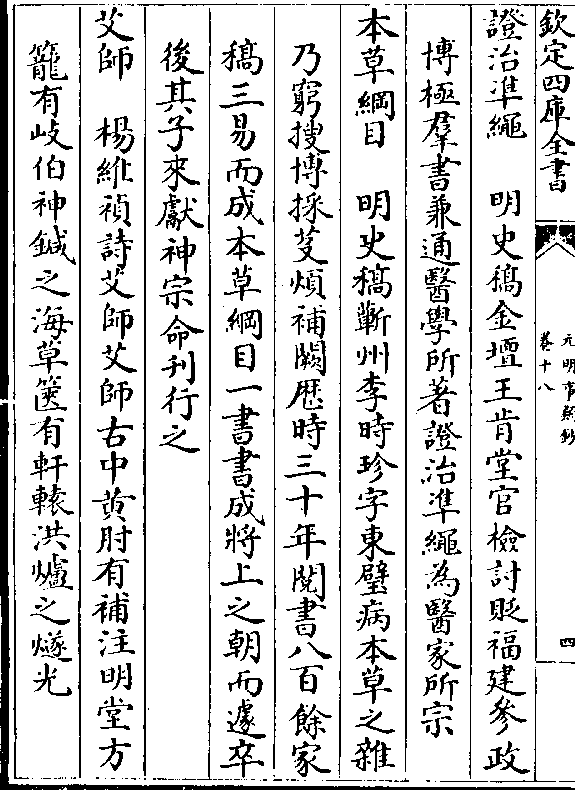 欽定四庫全書
元明事類鈔
卷十八
四
證治準繩　明史稿金壇王肯堂官檢討貶福建參政
博極羣書兼通醫學所著證治準繩為醫家所宗
本草綱目　明史稿蘄州李時珍字東璧病本草之雜
乃窮搜博採芟煩補闕歴時三十年閱書八百餘家
稿三易而成本草綱目一書書成將上之朝而遽卒
後其子來獻神宗命刊行之
艾師　楊維禎詩艾師艾師古中黄肘有補注明堂方
籠有岐伯神鍼之海草篋有軒轅洪爐之燧光